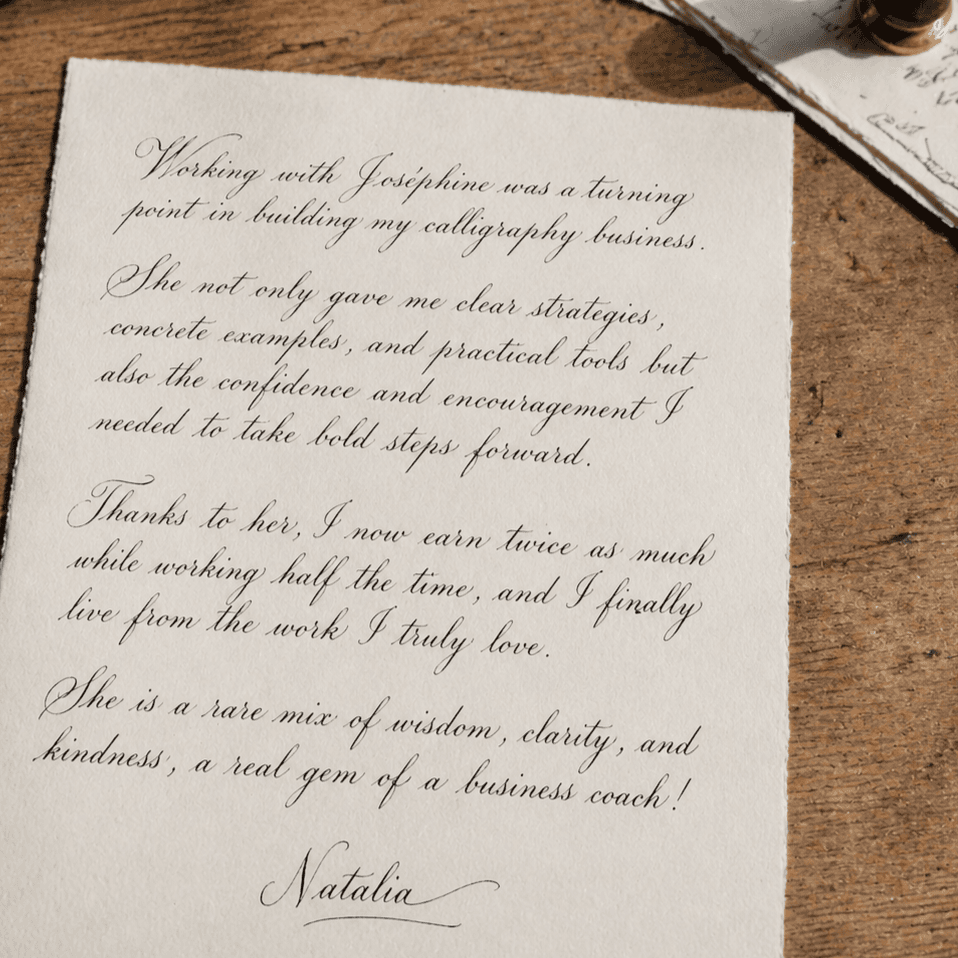 Working with Joséphine was a turning
point in building my calligraphy business.
She not only gave me clear strategies,
concrete examples, and practical tools but
also the confidence and encouragement I
needed to take bold steps forward.
Thanks to her, I now earn twice as much
while working half the time, and I finally
live from the work I truly love.
She is a rare mix of wisdom, clarity, and
kindness, a real gem of a business coach!
Natalia